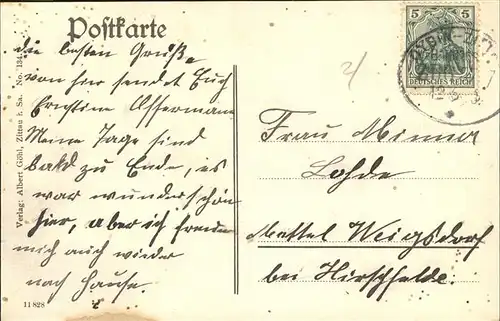 Postkarte
die besten Grüße
von hier sendet Euch
Ernstine
Meine Tage sind
bald zu Ende, es
war wunderschön
hier, aber ich freue
mich auch wieder
nach Hause.
Verlag: Albert Göhl, Zittau i. Sa. No. 134
11828
5 5
DEUTSCHES REICH
Frau Minna
Lohde
Mittel Weigsdorf
bei Hirschfelde.